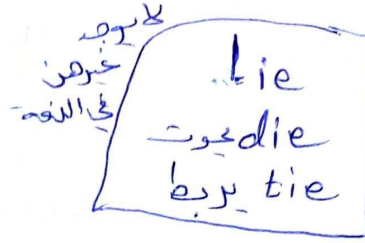 لا يوجد
غيرهن
في اللغة
lie
die يموت
tie يربط